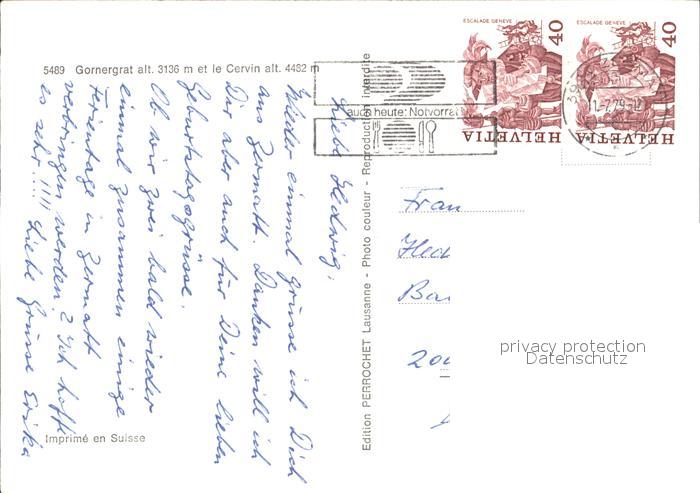 5489 Gornergrat alt. 3136 m et le Cervin alt. 4482 m
Liebe Hedwig,
Wieder einmal grüsse ich Dich
aus Zermatt. Danken will ich
Dir aber auch für Deine lieben
Geburtstagsgrüsse.
Ob wir zwei bald wieder
einmal zusammen einige
Ferientage in Zermatt
verbringen werden? Ich hoffe
es sehr!!!! Liebe Grüsse Erika
Imprimé en Suisse
Edition PERROCHET Lausanne - Photo couleur - Reproduction interdite
auch heute: Notvorrat
ESCALADE GENEVE
40
HELVETIA
ESCALADE GENEVE
40
HELVETIA
Frau
privacy protection
Datenschutz